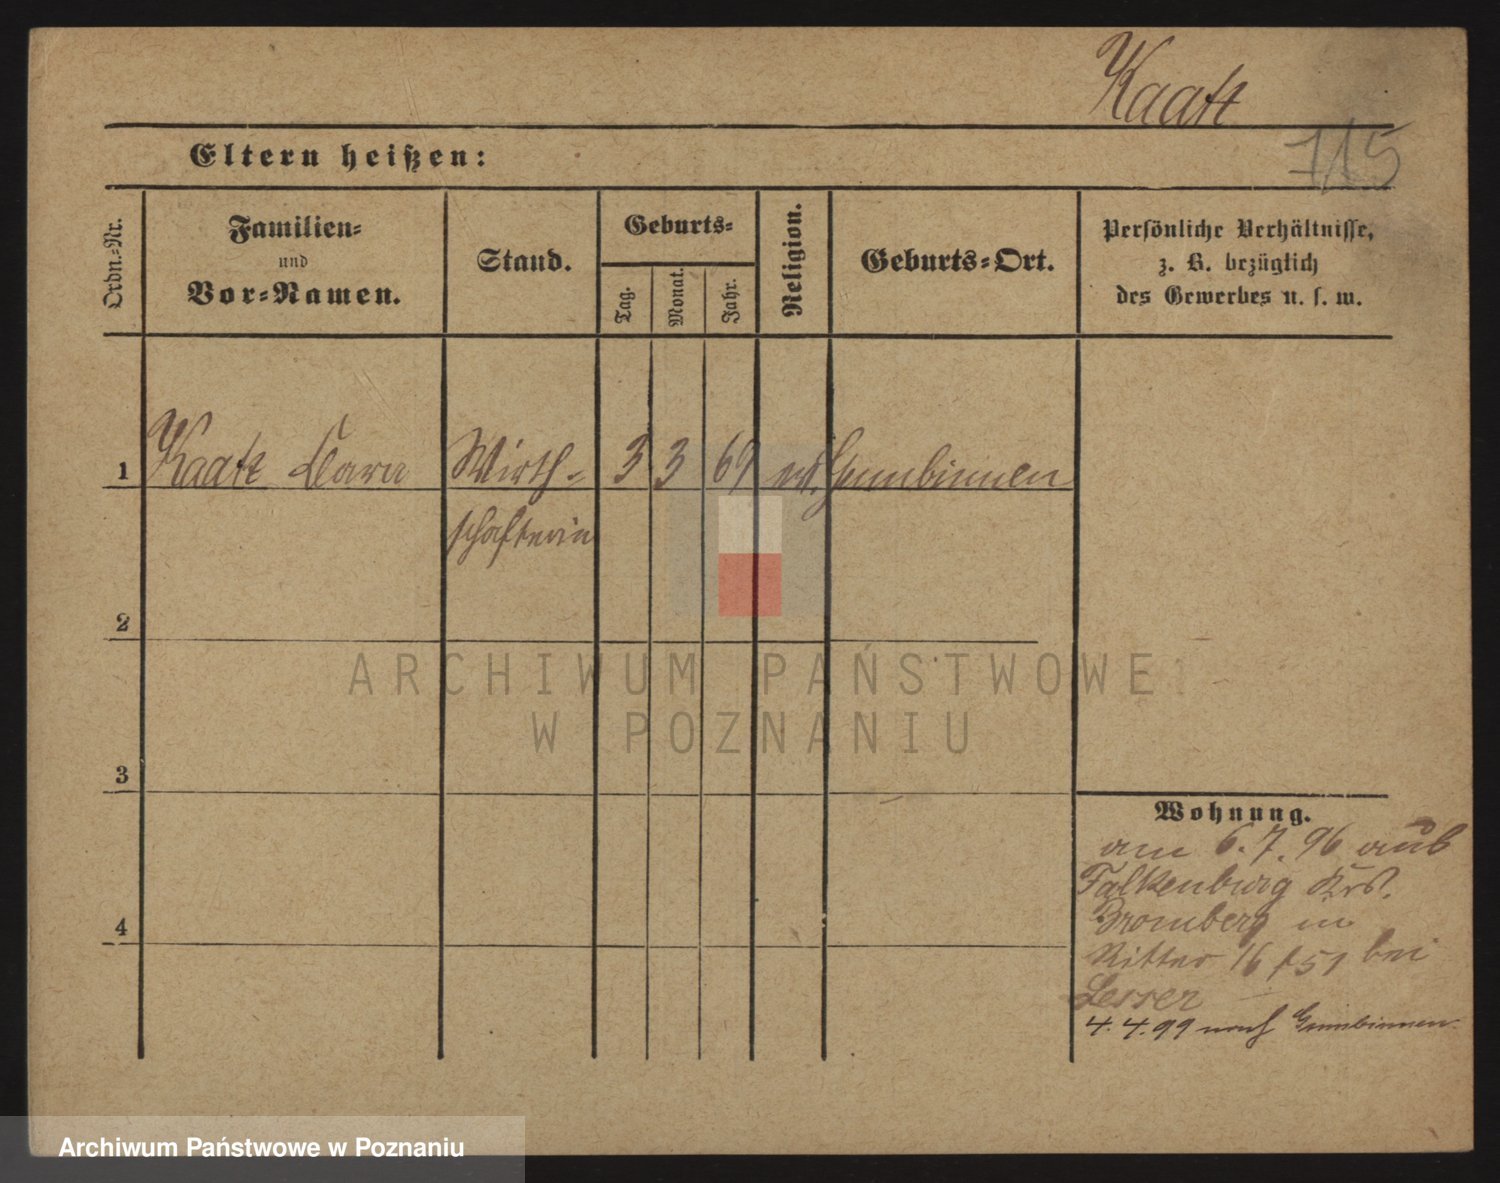 Kaatz
715
Eltern heißen:
Ordn.-Nr.
Familien-
und
Vor-Namen.
Stand.
Geburts-
Tag.
Monat.
Jahr.
Religion.
Geburts-Ort.
Persönliche Verhältnisse,
z. B. bezüglich
des Gewerbes u. s. w.
1 Kaatz Clara Wirth- 3 3 69 Gumbinnen
schafterin
2
3
4
Wohnung.
am 6. 7. 96 aus
Falkenburg Krs.
Bromberg in
Ritter 16 bei
Lesser
4. 4. 99 nach Gumbinnen
ARCHIWUM PAŃSTWOWE
W POZNANIU
Archiwum Państwowe w Poznaniu